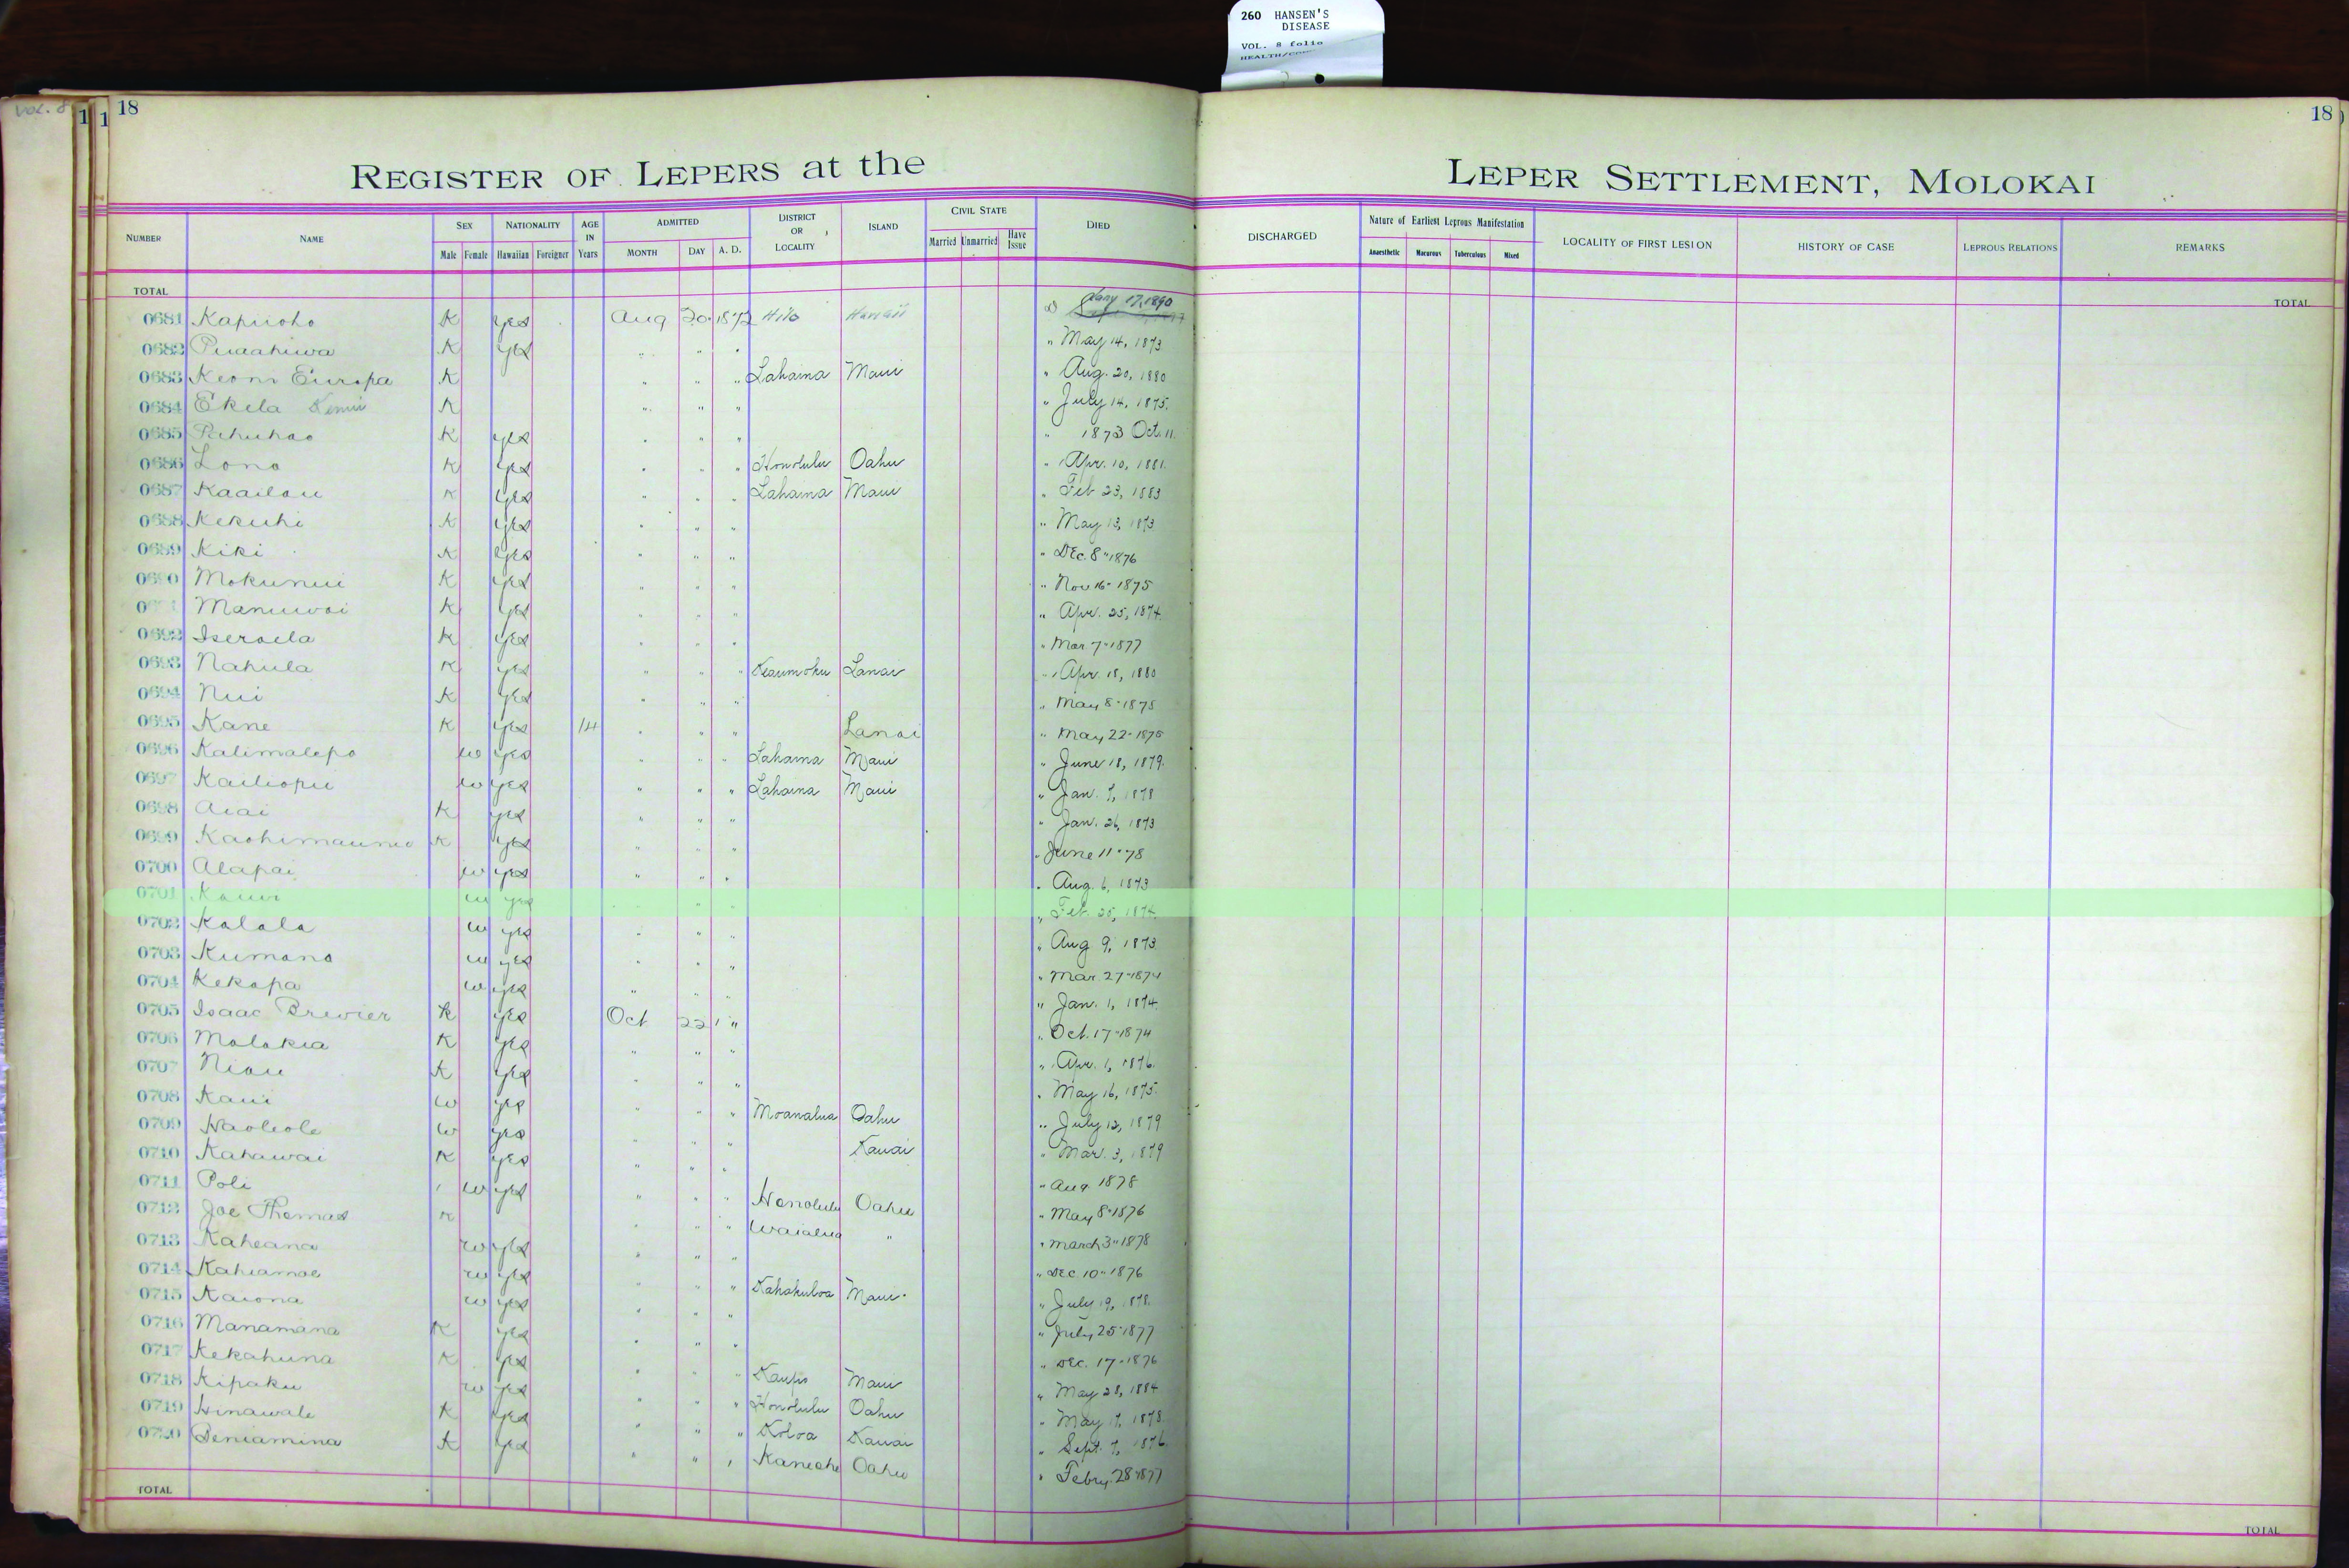 260 HANSEN'S
DISEASE
VOL. 8 folio
VOL. 8
1 1 18
18
REGISTER OF LEPERS at the LEPER SETTLEMENT, MOLOKAI
NUMBER NAME SEX Male Female NATIONALITY Hawaiian Foreigner AGE IN Years ADMITTED MONTH DAY A. D. DISTRICT OR LOCALITY ISLAND CIVIL STATE Married Unmarried Have Issue DIED DISCHARGED Nature of Earliest Leprous Manifestation Anaesthetic Macurous Tuberculous Mixed LOCALITY OF FIRST LESION HISTORY OF CASE LEPROUS RELATIONS REMARKS
TOTAL TOTAL
0681 Kapuoho K yes Aug 20 1872 Hilo Hawaii D Jany 17, 1890
0682 Puaahiwa K yes " " " " May 14, 1873
0683 Keoni Europa K " " " Lahaina Maui " Aug. 20, 1880
0684 Ekela K " " " " July 14, 1875.
0685 Pahuhao K yes " " " " 1873 Oct. 11.
0686 Lono K yes " " " Honolulu Oahu " Apr. 10, 1881.
0687 Kaailau K yes " " " Lahaina Maui " Feb 23, 1883
0688 Kekuhi K yes " " " " May 13, 1873
0689 Kiki K yes " " " " Dec. 8" 1876
0690 Mokunui K yes " " " " Nov 16- 1875
Manuwai K yes " " " " Apr. 25, 1874.
0692 Iseraela K yes " " " " Mar 7" 1877
0693 Nahula K yes " " " Keaumoku Lanai " Apr. 18, 1880
0694 Nui K yes " " " " May 8" 1878
0695 Kane K yes 14 " " " Lanai " May 22- 1878
0696 Kalimalepo w yes " " " Lahaina Maui " June 18, 1879.
0697 Kailiopu w yes " " " Lahaina Maui " Jan. 7, 1878
0698 Aiai K yes " " " " Jan. 26, 1873
0699 K yes " " " " June 11" 78
0700 Alapai w yes " " " " Aug. 6, 1873
0701 Kauwi w yes " " " " Feb. 25, 1874.
0702 Kalala w yes " " " " Aug 9, 1873.
0703 Kumano w yes " " " " Mar. 27" 1874
0704 Kekapa w yes " " " " Jan. 1, 1874.
0705 Isaac Brewer K yes Oct 22 " " Oct. 17- 1874
0706 Malokia K yes " " " " Apr. 1, 1876.
0707 Niau K yes " " " " May 16, 1875.
0708 Kaui w yes " " " Moanalua Oahu " July 12, 1879
0709 Haoleole w yes " " " Kauai " Mar. 3, 1879
0710 Kahawai K yes " " " " Aug 1878
0711 Poli w yes " " " Honolulu Oahu " May 8" 1876
0712 Joe Thomas K " " " Waialua " " March 3" 1878
0713 Kaheana w yes " " " " Dec. 10" 1876
0714 Kahiamoe w yes " " " Kahakuloa Maui " July 19, 1878.
0715 Kaiona w yes " " " " July 25" 1877
0716 Manamana K yes " " " " Dec. 17- 1876
0717 Kekahuna K yes " " " Kaupo Maui " May 28, 1884
0718 Kipaku w yes " " " Honolulu Oahu " May 17, 1878.
0719 Hinawale K yes " " " Koloa Kauai " Sept. 7, 1876.
0720 Beniamina K yes " " " Kaneohe Oahu " Febry. 28" 1877
TOTAL TOTAL